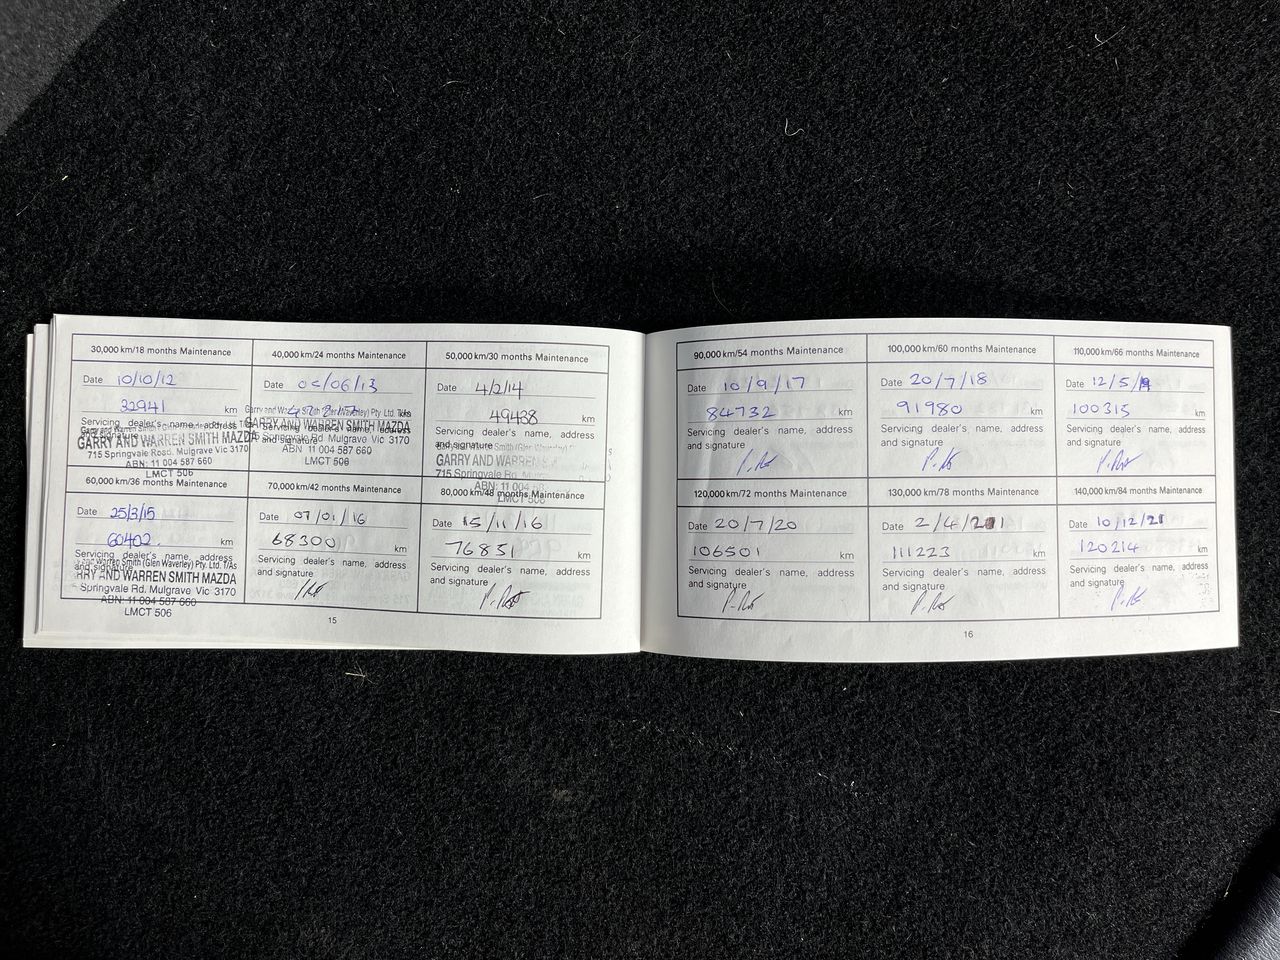 30,000 km/18 months Maintenance
Date 10/10/12
32941 km
Servicing dealer's name, address
and signature
GARRY AND WARREN SMITH MAZDA
715 Springvale Road, Mulgrave Vic 3170
ABN: 11 004 587 660
LMCT 506
40,000 km/24 months Maintenance
Date /06/13
km
Servicing dealer's name, address
and signature
Garry and Warren Smith (Glen Waverley) Pty. Ltd. T/As
GARRY AND WARREN SMITH MAZDA
715 Springvale Rd. Mulgrave Vic 3170
ABN: 11 004 587 660
LMCT 506
50,000 km/30 months Maintenance
Date 4/2/14
49438 km
Servicing dealer's name, address
and signature
GARRY AND WARREN
715 Springvale Rd.
ABN: 11 004
LMCT 506
60,000 km/36 months Maintenance
Date 25/3/15
60402 km
Servicing dealer's name, address
and signature
Warren Smith (Glen Waverley) Pty. Ltd. T/As
RRY AND WARREN SMITH MAZDA
Springvale Rd. Mulgrave Vic 3170
ABN: 11 004 587 660
LMCT 506
70,000 km/42 months Maintenance
Date 07/01/16
68300 km
Servicing dealer's name, address
and signature
80,000 km/48 months Maintenance
Date 15/11/16
76851 km
Servicing dealer's name, address
and signature
15
90,000 km/54 months Maintenance
Date 10/9/17
84732 km
Servicing dealer's name, address
and signature
100,000 km/60 months Maintenance
Date 20/7/18
91980 km
Servicing dealer's name, address
and signature
110,000 km/66 months Maintenance
Date 12/5/19
100315 km
Servicing dealer's name, address
and signature
120,000 km/72 months Maintenance
Date 20/7/20
106501 km
Servicing dealer's name, address
and signature
130,000 km/78 months Maintenance
Date 2/4/21
111223 km
Servicing dealer's name, address
and signature
140,000 km/84 months Maintenance
Date 10/12/21
120214 km
Servicing dealer's name, address
and signature
16